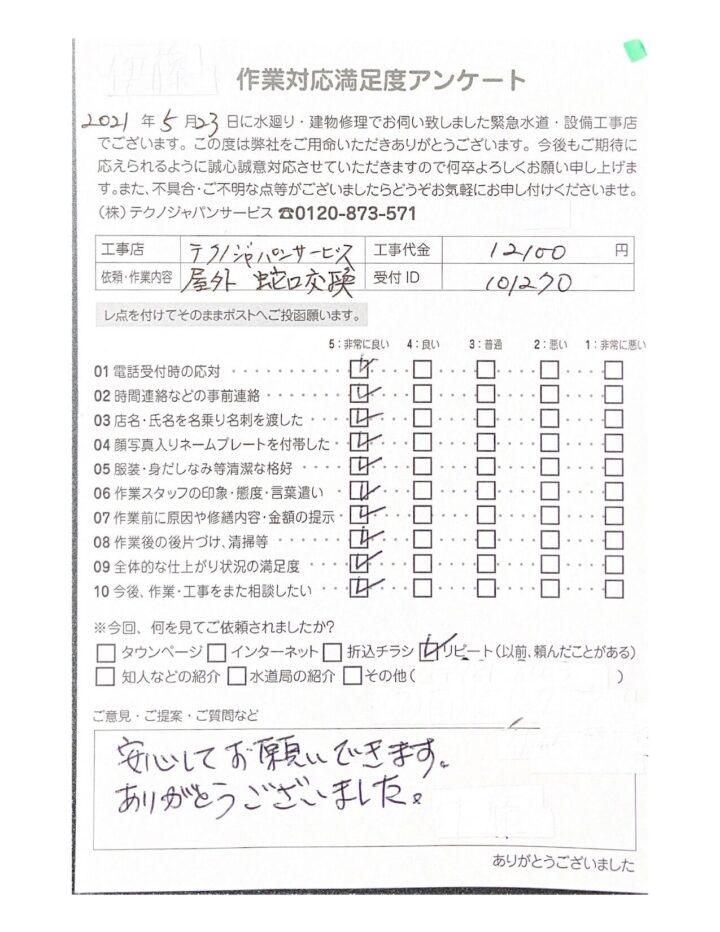 作業対応満足度アンケート
2021年5月23日に水廻り・建物修理でお伺い致しました緊急水道・設備工事店
でございます。この度は弊社をご用命いただきありがとうございます。今後もご期待に
応えられるように誠心誠意対応させていただきますので何卒よろしくお願い申し上げま
す。また、不具合・ご不明な点等がございましたらどうぞお気軽にお申し付けくださいませ。
(株)テクノジャパンサービス ☎0120-873-571
工事店 テクノジャパンサービス 工事代金 12100 円
依頼・作業内容 屋外 蛇口交換 受付ID 101270
レ点を付けてそのままポストへご投函願います。
5:非常に良い 4:良い 3:普通 2:悪い 1:非常に悪い
01 電話受付時の応対
02 時間連絡などの事前連絡
03 店名・氏名を名乗り名刺を渡した
04 顔写真入りネームプレートを付帯した
05 服装・身だしなみ等清潔な格好
06 作業スタッフの印象・態度・言葉遣い
07 作業前に原因や修繕内容・金額の提示
08 作業後の後片づけ、清掃等
09 全体的な仕上がり状況の満足度
10 今後、作業・工事をまた相談したい
※今回、何を見てご依頼されましたか?
タウンページ インターネット 折込チラシ リピート(以前、頼んだことがある)
知人などの紹介 水道局の紹介 その他( )
ご意見・ご提案・ご質問など
安心してお願いできます。
ありがとうございました。
ありがとうございました